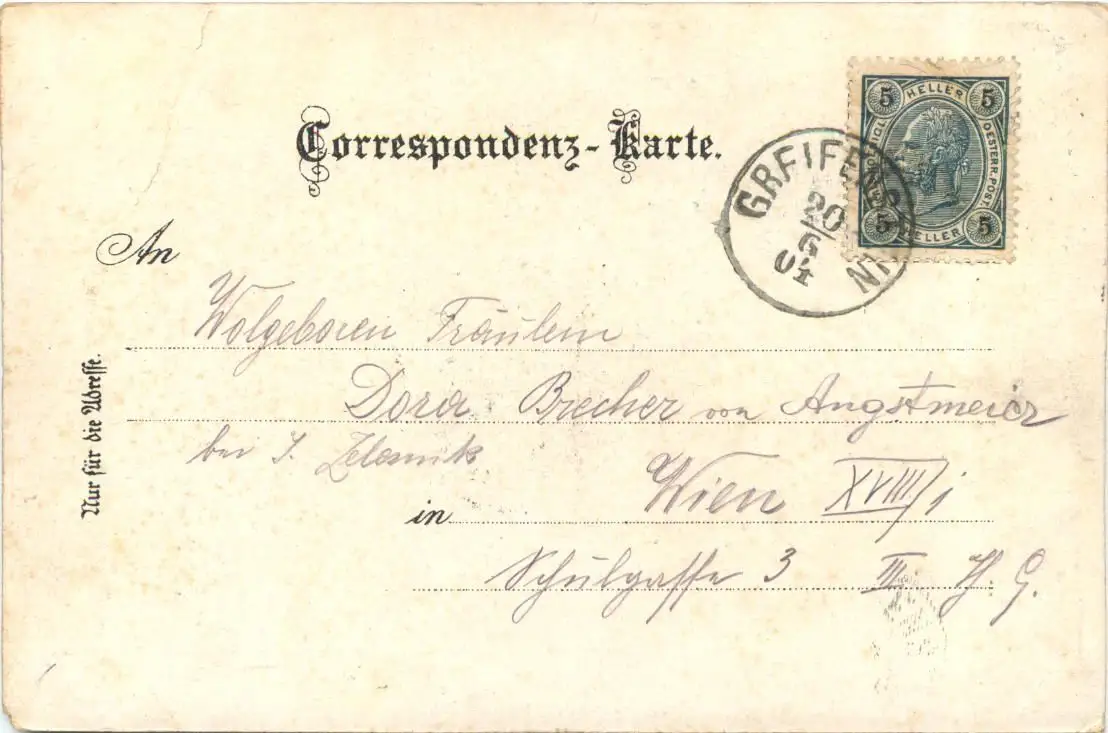 Correspondenz-Karte.
HELLER
5 5
OESTERR. POST.
5 5
HELLER
20
6
04
An
Wolgeboren Fräulein
Dora Brecher von Angstmeier
bei J.
Wien XVIII/1
in
Schulgasse 3 III. H. G.
Nur für die Adresse.